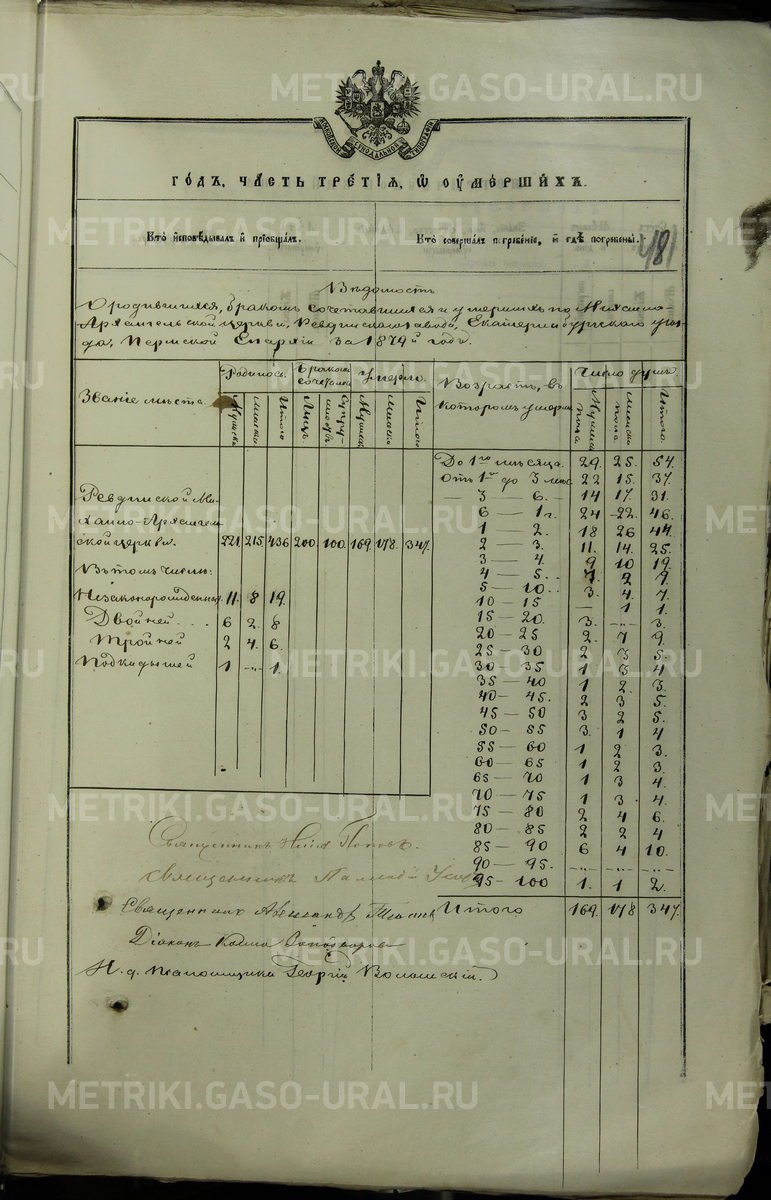 METRIKI.GASO-URAL.RU
МОСКОВСКОЙ СѴНОДАЛЬНОЙ ТИПОГРАФІИ
ГОДЪ, ЧАСТЬ ТРЕТІЯ, Ѡ ОУМЕРШИХЪ.
Кто исповѣдывалъ и пріобщалъ.
Кто совершалъ погребеніе, и гдѣ погребены.
481
Вѣдомость
О родившихся, бракомъ сочетавшихся и умершихъ по Михаило-
Архангельской церкви, Ревдинскаго завода, Екатеринбургскаго уѣз-
да, Пермской Епархіи за 1879й годъ.
Званіе мѣста.
Родилось.
Бракомъ сочеталось
Умерло.
Мужеска
женска
Итого
Лицъ
Супружествъ
Мужеска
женска
Итого
Ревдинской Ми-
хаило-Архангель
ской церкви. 221. 215. 436 200. 100. 169. 178. 347.
Въ томъ числѣ:
Незаконорожденныхъ 11. 8 19.
Двойней . . . 6 2. 8
Тройней 2 4. 6.
Подкидышей 1 „ 1.
Возрастъ, въ
которомъ умерли.
Число душъ.
Мужеска пола
женска пола
Итого.
До 1го мѣсяца. 29. 25. 54.
Отъ 1го до 3 мѣс. 22 15. 37.
— 3 — 6. — 14 17. 31.
6 — 1г. 24 22. 46.
1 — 2. 18 26 44.
2 — 3. 11. 14. 25.
3 — 4. 9 10 19.
4 — 5. 7. 2 9.
5 — 10. 3. 4. 7.
10 — 15 — 1 1.
15 — 20. 3. „ 3.
20 — 25 2. 7 9.
25 — 30 2 3 5.
30 — 35 1 3 4
35 — 40 1 2. 3.
40 — 45. 2 3 5.
45 — 50 3 2 5.
50 — 55 3. 1 4
55 — 60 1 2 3.
60 — 65 1 2 3.
65 — 70 1 3 4.
70 — 75 1 3. 4.
75 — 80 2 4 6.
80 — 85 2 2 4
85 — 90 6 4 10.
90 — 95. „ „ „
95 — 100 1. 1 2.
Итого 169. 178 347.
Священникъ Поповъ.
Священникъ
Священникъ Александръ
Діаконъ Косма
И. д. Псаломщика Георгій